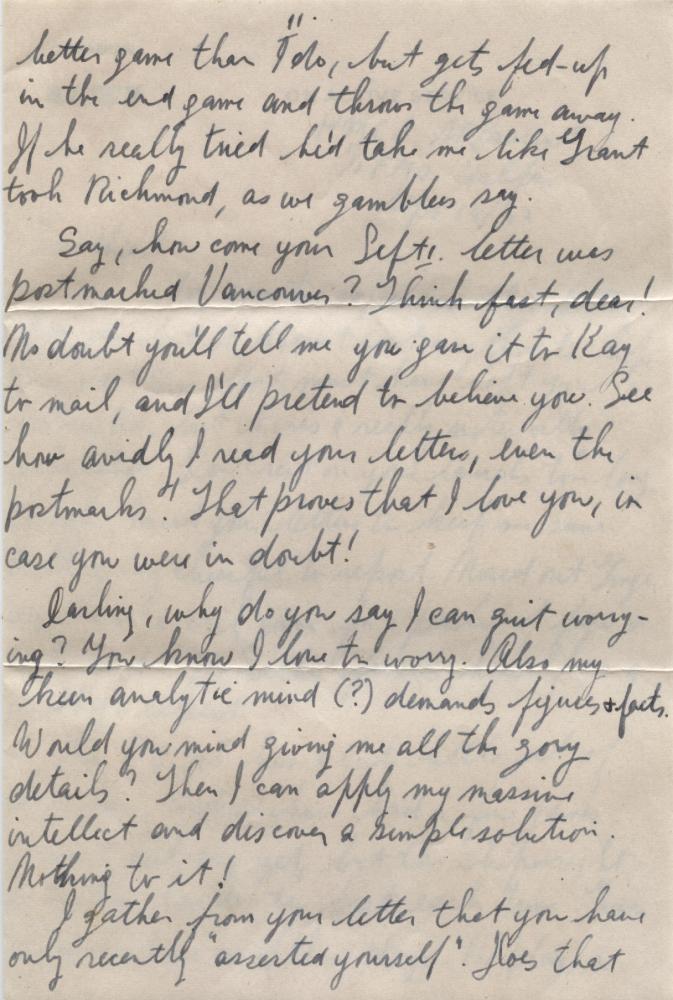 "
better game than I do, but gets fed-up
in the end game and throws the game away.
If he really tried he'd take me like Grant
took Richmond, as we gamblers say.
Say, how come your Sept 1. letter was
postmarked Vancouver? Think fast, dear!
No doubt you'll tell me you gave it to Kay
to mail, and I'll pretend to believe you. See
how avidly I read your letters, even the
postmarks! That proves that I love you, in
case you were in doubt!
Darling, why do you say I can quit worry-
ing? You know I love to worry. Also my
keen analytic mind (?) demands figures & facts.
Would you mind giving me all the gory
details? Then I can apply my massive
intellect and discover a simple solution.
Nothing to it!
I gather from your letter that you have
only recently "asserted yourself". Does that